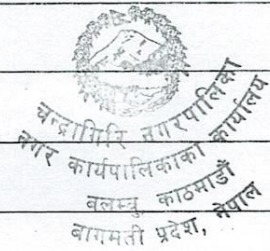 चन्द्रागिरि नगरपालिका
नगर कार्यपालिकाको कार्यालय
बलम्बु काठमाडौं
बागमती प्रदेश, नेपाल